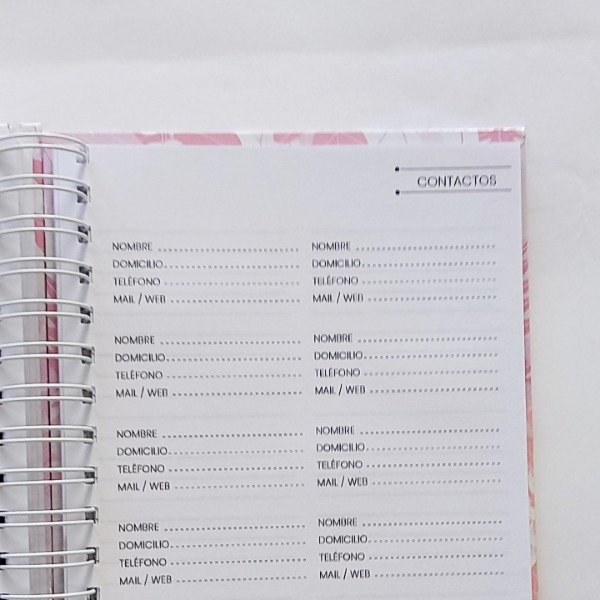 CONTACTOS
NOMBRE
DOMICILIO
TELÉFONO
MAIL / WEB
NOMBRE
DOMICILIO
TELÉFONO
MAIL / WEB
NOMBRE
DOMICILIO
TELÉFONO
MAIL / WEB
NOMBRE
DOMICILIO
TELÉFONO
MAIL / WEB
NOMBRE
DOMICILIO
TELÉFONO
MAIL / WEB
NOMBRE
DOMICILIO
TELÉFONO
MAIL / WEB
NOMBRE
DOMICILIO
TELÉFONO
MAIL / WEB
NOMBRE
DOMICILIO
TELÉFONO
MAIL / WEB